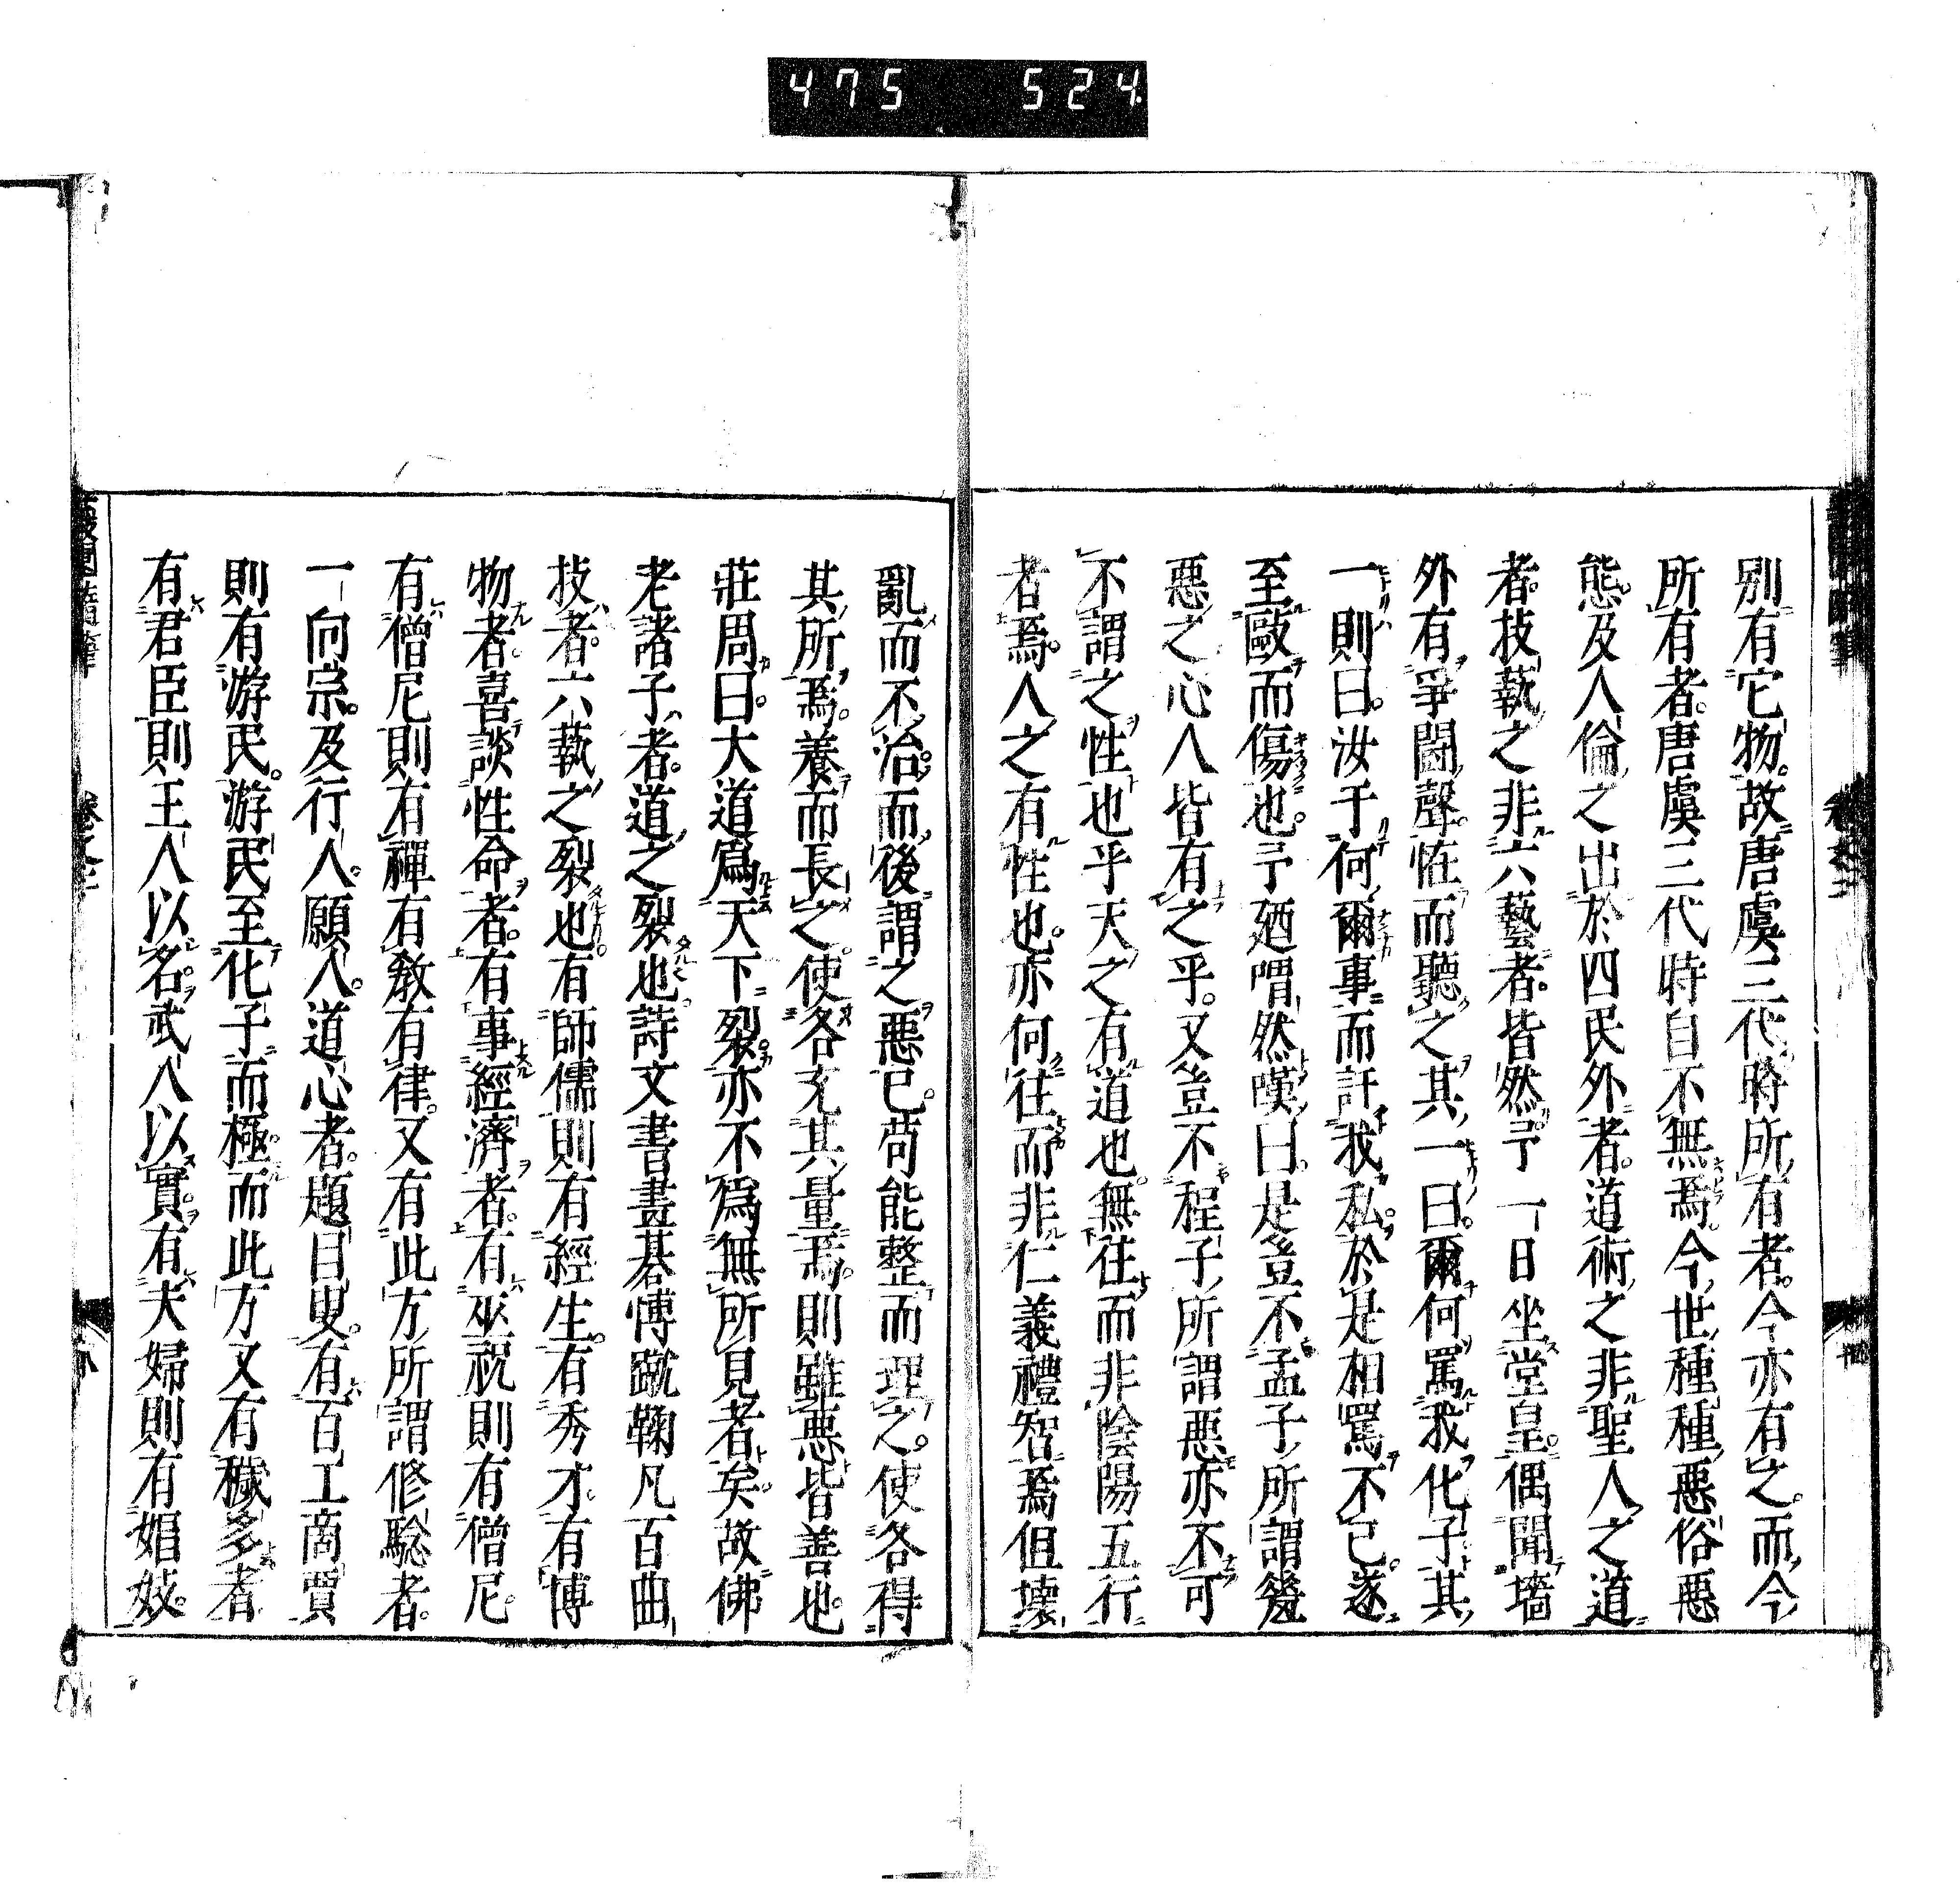 475 524
別有它物。故唐虞三代時所有者。今亦有之。而今
所有者。唐虞三代時自不無焉。今世種種惡俗惡
態。及人倫之出於四民外者。道術之非聖人之道
者。技藝之非六藝者。皆然。予一日坐堂皇。偶聞墻
外有爭鬪聲。恠而聽之。其一曰。爾何罵我化子。其
一則曰。汝于何爾事而託我私。於是相罵不已。遂
至毆而傷也。予廼喟然嘆曰。是豈不孟子所謂羞
惡之心人皆有之乎。又豈不程子所謂惡亦不可
不謂之性也乎。天之有道也。無往而非陰陽五行
者焉。人之有性也。亦何往而非仁義禮智焉。但壞
亂而不治。而後謂之惡已。苟能整而理之。使各得
其所焉。養而長之。使各充其量焉。則雖惡皆善也。
莊周曰。大道爲天下裂。亦不爲無所見者矣。故佛
老諸子者。道之裂也。詩文書畫棊愽蹴鞠凡百曲
技者。六藝之裂也。有師儒則有經生。有秀才。有博
物者。喜談性命者。有事經濟者。有巫祝則有僧尼。
有僧尼則有禪有教有律。又有此方所謂修驗者。
一向宗。及行人。願人。道心者。題目叟。有百工商賈
則有游民。游民至化子而極。而此方又有穢多者。
有君臣則王人以名。武人以實。有夫婦則有娼妓。
卷之二